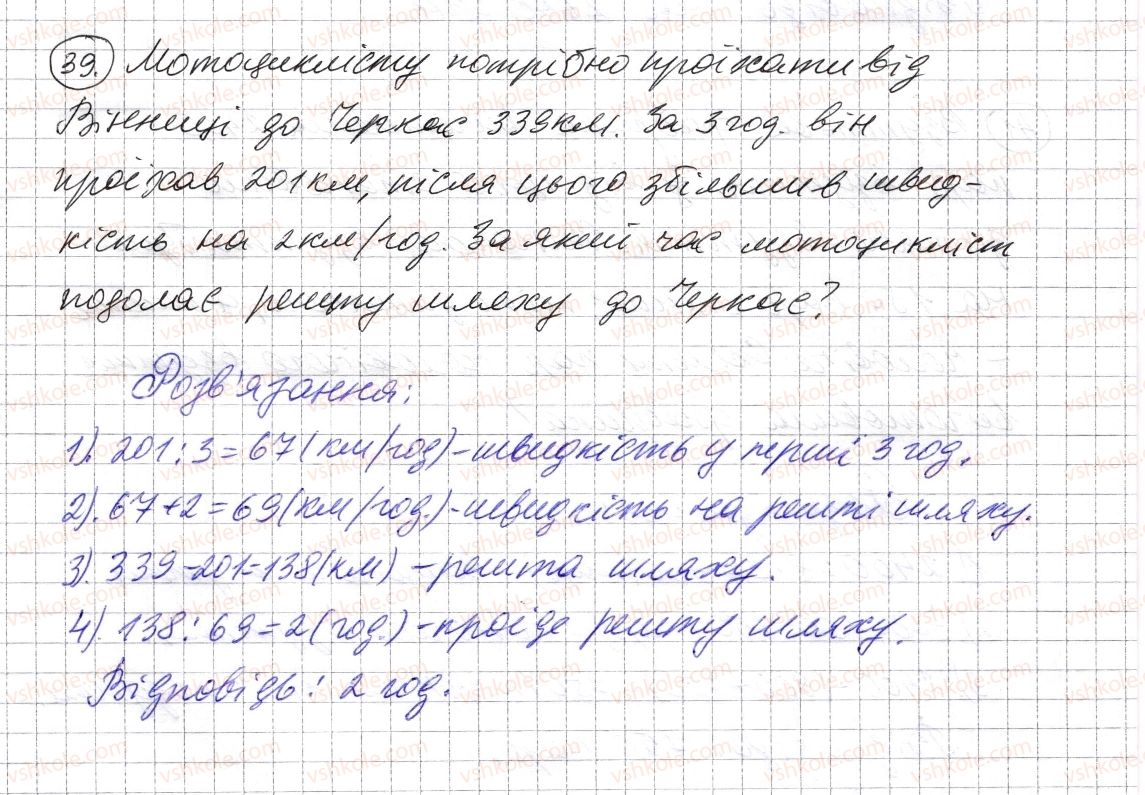 39. Мотоциклісту потрібно проїхати від
Вінниці до Черкас 339км. За 3 год. він
проїхав 201км, після цього збільшив швид-
кість на 2км/год. За який час мотоцикліст
подолає решту шляху до Черкас?
Розв'язання:
1). 201:3=67(км/год)-швидкість у перші 3 год.
2). 67+2=69(км/год.)-швидкість на решті шляху.
3). 339-201=138(км) - решта шляху.
4). 138:69=2(год.)-проїде решту шляху.
Відповідь: 2 год.